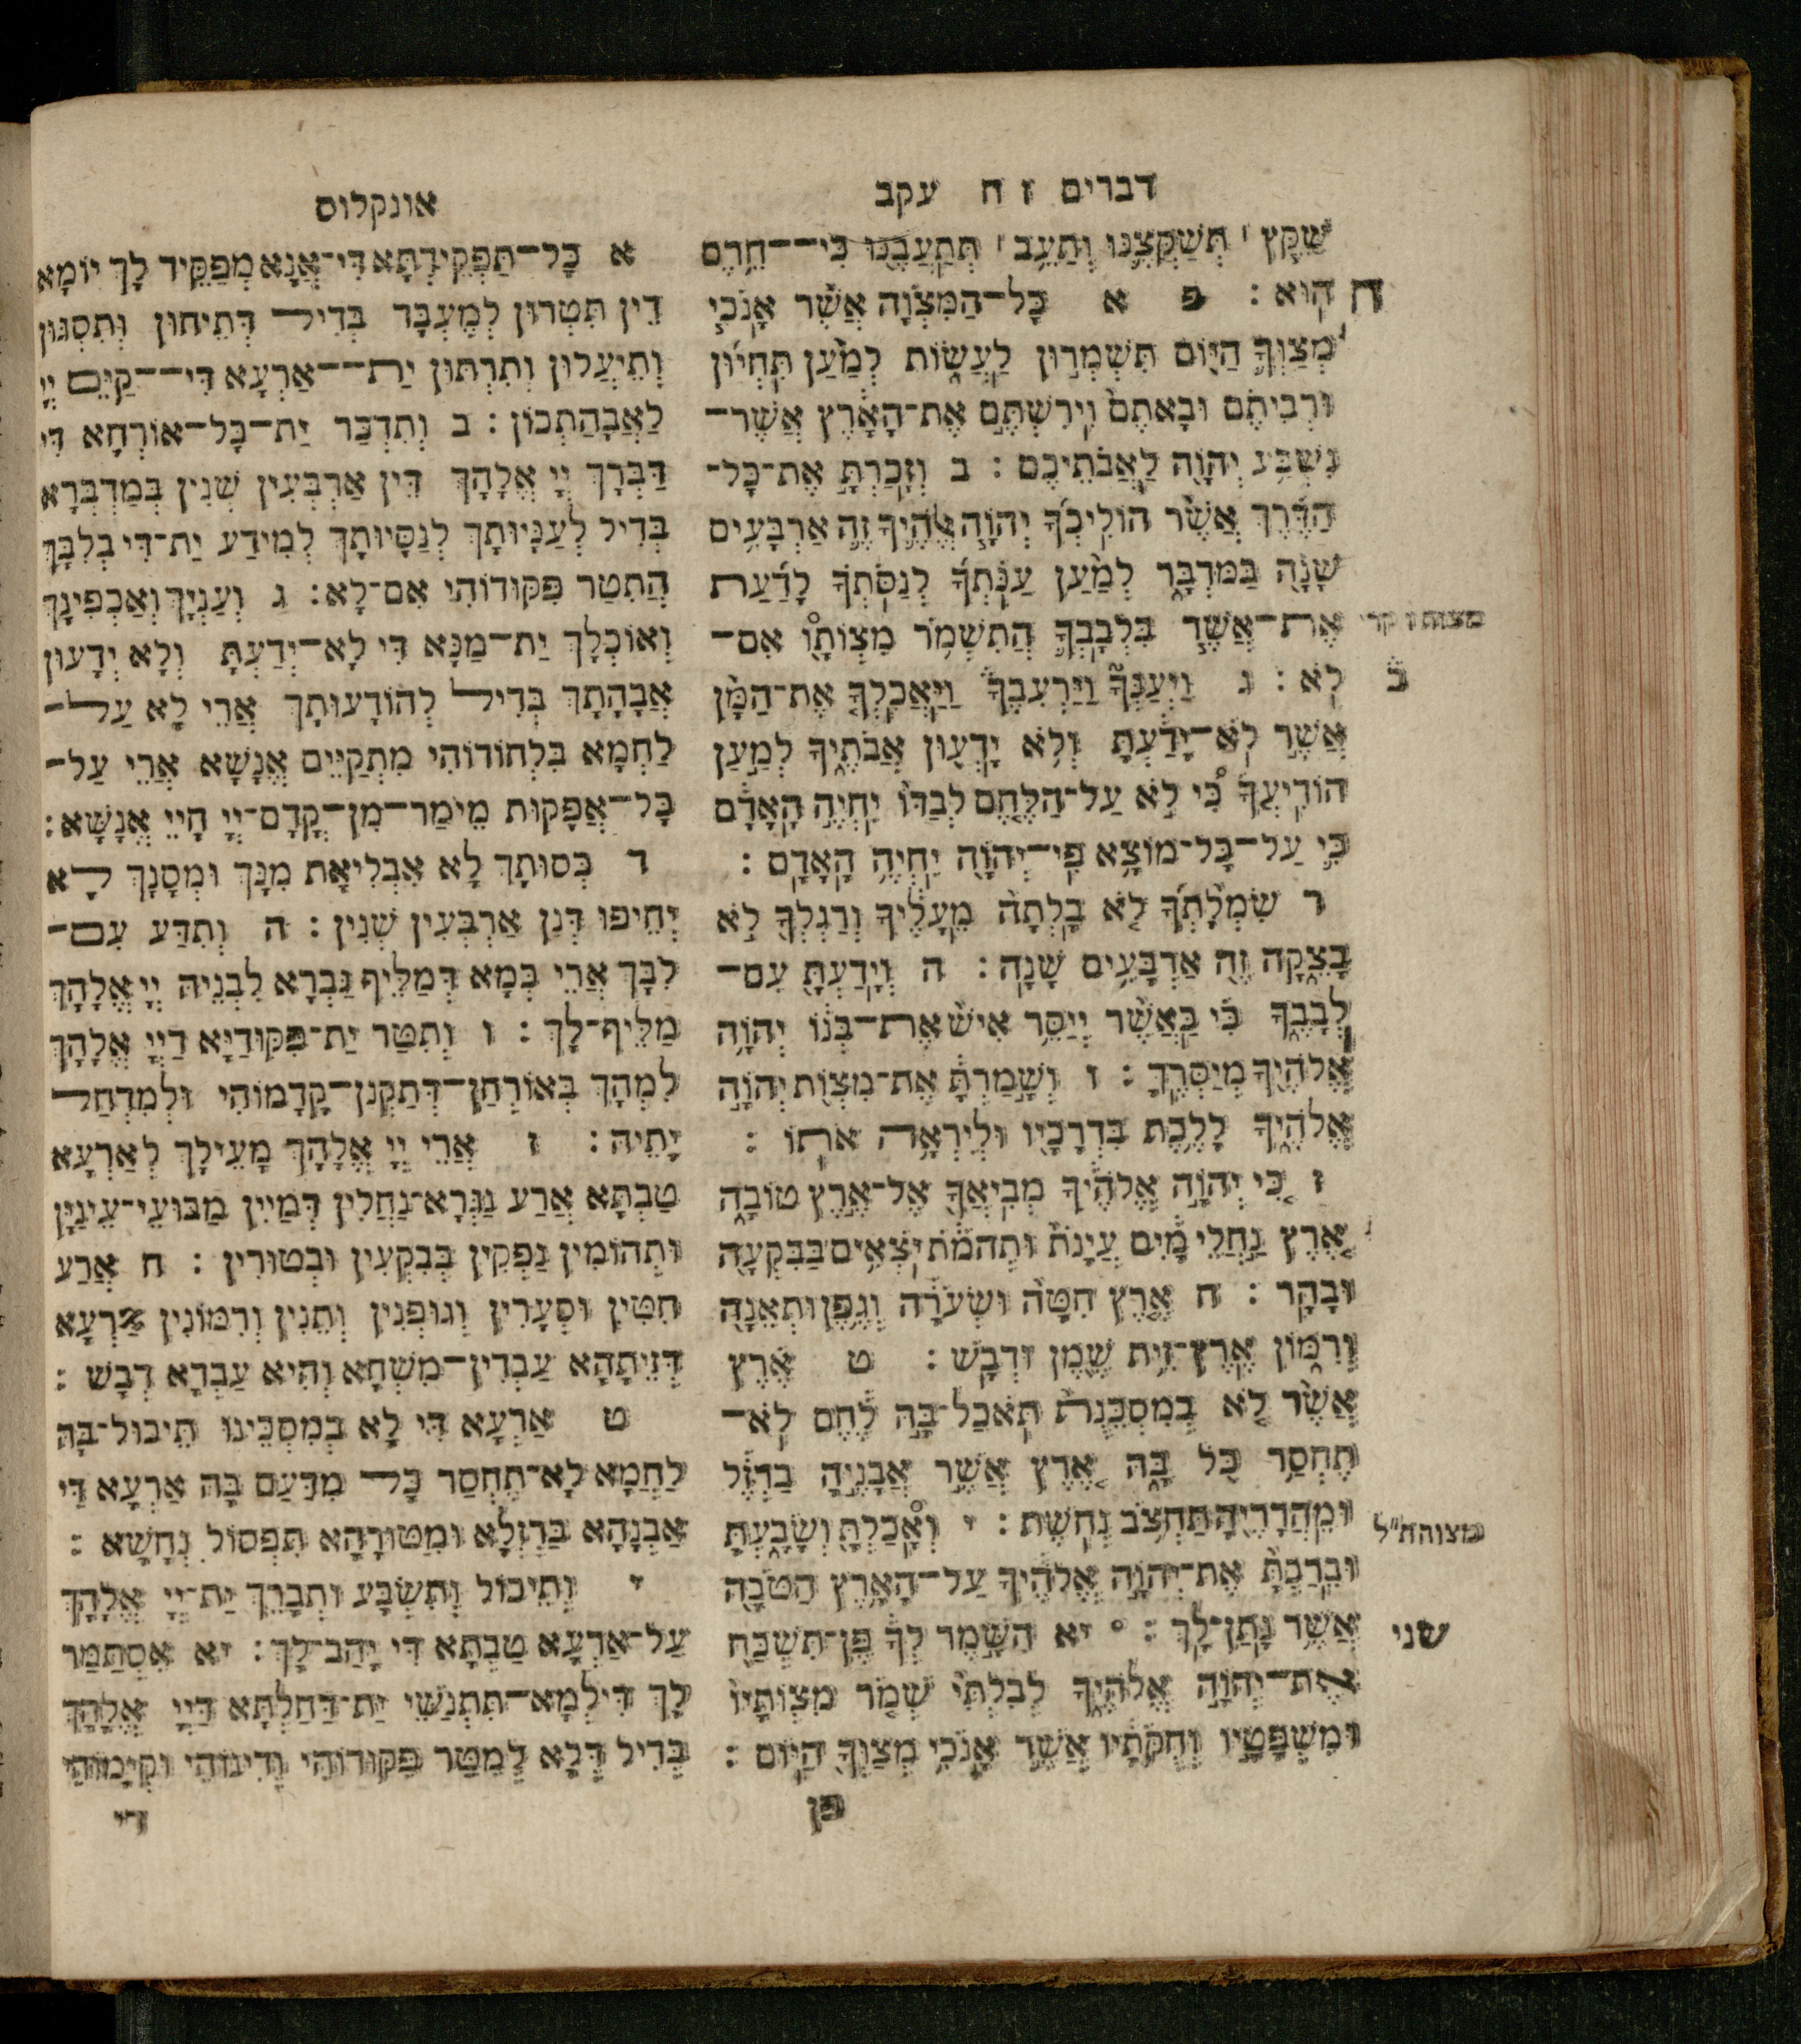 דברים ז ח עקב
שַׁקֵּץ תְּשַׁקְּצֶנּוּ וְתַעֵב תְּתַעֲבֶנּוּ כִּי־חֵרֶם
ח הוּא : פ א כָּל־הַמִּצְוָה אֲשֶׁר אָנֹכִי
מְצַוְּךָ הַיּוֹם תִּשְׁמְרוּן לַעֲשׂוֹת לְמַעַן תִּחְיוּן
וּרְבִיתֶם וּבָאתֶם וִירִשְׁתֶּם אֶת־הָאָרֶץ אֲשֶׁר־
נִשְׁבַּע יְהוָה לַאֲבֹתֵיכֶם : ב וְזָכַרְתָּ אֶת־כָּל־
הַדֶּרֶךְ אֲשֶׁר הוֹלִיכְךָ יְהוָה אֱלֹהֶיךָ זֶה אַרְבָּעִים
שָׁנָה בַּמִּדְבָּר לְמַעַן עַנֹּתְךָ לְנַסֹּתְךָ לָדַעַת
אֶת־אֲשֶׁר בִּלְבָבְךָ הֲתִשְׁמֹר מִצְוֹתָו אִם־
לֹא : ג וַיְעַנְּךָ וַיַּרְעִבֶךָ וַיַּאֲכִלְךָ אֶת־הַמָּן
אֲשֶׁר לֹא־יָדַעְתָּ וְלֹא יָדְעוּן אֲבֹתֶיךָ לְמַעַן
הוֹדִיעֲךָ כִּי לֹא עַל־הַלֶּחֶם לְבַדּוֹ יִחְיֶה הָאָדָם
כִּי עַל־כָּל־מוֹצָא פִי־יְהוָה יִחְיֶה הָאָדָם :
ד שִׂמְלָתְךָ לֹא בָלְתָה מֵעָלֶיךָ וְרַגְלְךָ לֹא
בָצֵקָה זֶה אַרְבָּעִים שָׁנָה : ה וְיָדַעְתָּ עִם־
לְבָבֶךָ כִּי כַּאֲשֶׁר יְיַסֵּר אִישׁ אֶת־בְּנוֹ יְהוָה
אֱלֹהֶיךָ מְיַסְּרֶךָּ : ו וְשָׁמַרְתָּ אֶת־מִצְוֹת יְהוָה
אֱלֹהֶיךָ לָלֶכֶת בִּדְרָכָיו וּלְיִרְאָה אֹתוֹ :
ז כִּי יְהוָה אֱלֹהֶיךָ מְבִיאֲךָ אֶל־אֶרֶץ טוֹבָה
אֶרֶץ נַחֲלֵי מָיִם עֲיָנֹת וּתְהֹמֹת יֹצְאִים בַּבִּקְעָה
וּבָהָר : ח אֶרֶץ חִטָּה וּשְׂעֹרָה וְגֶפֶן וּתְאֵנָה
וְרִמּוֹן אֶרֶץ־זֵית שֶׁמֶן וּדְבָשׁ : ט אֶרֶץ
אֲשֶׁר לֹא בְמִסְכֵּנֻת תֹּאכַל־בָּהּ לֶחֶם לֹא־
תֶחְסַר כֹּל בָּהּ אֶרֶץ אֲשֶׁר אֲבָנֶיהָ בַרְזֶל
וּמֵהֲרָרֶיהָ תַּחְצֹב נְחֹשֶׁת : י וְאָכַלְתָּ וְשָׂבָעְתָּ
וּבֵרַכְתָּ אֶת־יְהוָה אֱלֹהֶיךָ עַל־הָאָרֶץ הַטֹּבָה
שני אֲשֶׁר נָתַן־לָךְ : ° יא הִשָּׁמֶר לְךָ פֶּן־תִּשְׁכַּח
אֶת־יְהוָה אֱלֹהֶיךָ לְבִלְתִּי שְׁמֹר מִצְוֹתָיו
וּמִשְׁפָּטָיו וְחֻקֹּתָיו אֲשֶׁר אָנֹכִי מְצַוְּךָ הַיּוֹם :
פן
אונקלוס
א כָּל־תַּפְקִידְתָּא דִּי־אֲנָא מְפַקֵּיד לָךְ יוֹמָא
דֵין תִּטְּרוּן לְמֶעְבַּד בְּדִיל דְּתֵיחוּן וְתִסְגּוּן
וְתֵיעֲלוּן וְתֵרְתוּן יַת־אַרְעָא דִּי־קַיֵּים יְיָ
לַאֲבָהַתְכוֹן : ב וְתִדְכַּר יַת־כָּל־אוֹרְחָא דִּי
דַּבְּרָךְ יְיָ אֱלָהָךְ דֵּין אַרְבְּעִין שְׁנִין בְּמַדְבְּרָא
בְּדִיל לְעַנָּיוּתָךְ לְנַסָּיוּתָךְ לְמִידַע יַת־דִּי בְלִבָּךְ
הֲתִטַּר פִּקּוּדוֹהִי אִם־לָא : ג וְעַנְּיָךְ וְאַכְפִינָךְ
וְאוֹכְלָךְ יַת־מַנָּא דִּי לָא־יְדַעְתָּ וְלָא יְדָעוּן
אֲבָהָתָךְ בְּדִיל לְהוֹדָעוּתָךְ אֲרֵי לָא עַל־
לַחְמָא בִּלְחוֹדוֹהִי מִתְקַיֵּים אֱנָשָׁא אֲרֵי עַל־
כָּל־אֲפָקוּת מֵימַר־מִן־קֳדָם־יְיָ חָיֵי אֱנָשָׁא :
ד כְּסוּתָךְ לָא אִבְלִיאַת מִנָּךְ וּמְסָנָךְ לָא
יְחֵיפוּ דְּנַן אַרְבְּעִין שְׁנִין : ה וְתִדַּע עִם־
לִבָּךְ אֲרֵי כְּמָא דְּמַלֵּיף גַּבְרָא לִבְנֵיהּ יְיָ אֱלָהָךְ
מַלֵּיף־לָךְ : ו וְתִטַּר יַת־פִּקּוּדַיָּא דַיְיָ אֱלָהָךְ
לִמְהָךְ בְּאוֹרְחָן־דְּתָקְנָן־קֳדָמוֹהִי וּלְמִדְחַל
יָתֵיהּ : ז אֲרֵי יְיָ אֱלָהָךְ מָעֵילָךְ לְאַרְעָא
טָבְתָא אֲרַע נַגְּרָא־נַחֲלִין דְּמַיִין מַבּוּעֵי־עֵינָוָן
וּתְהוֹמִין נָפְקִין בְּבִקְעִין וּבְטוּרִין : ח אֲרַע
חִטִּין וּסְעָרִין וְגוּפְנִין וְתֵנִין וְרִמּוֹנִין אַרְעָא
דְּזֵיתָהָא עַבְדִין־מִשְׁחָא וְהִיא עַבְדָא דְבָשׁ :
ט אַרְעָא דִּי לָא בְמִסְכֵּינוּ תֵּיכוּל־בָּהּ
לַחְמָא לָא־תֶחְסַר כָּל מִדַּעַם בָּהּ אַרְעָא דִּי
אַבְנָהָא בַּרְזְלָא וּמִטּוּרָהָא תִּפְסוֹל נְחָשָׁא :
י וְתֵיכוּל וְתִשְׂבָּע וּתְבָרֵךְ יַת־יְיָ אֱלָהָךְ
עַל־אַרְעָא טָבְתָא דִּי יְהַב־לָךְ : יא אִסְתַּמַּר
לָךְ דִּילְמָא־תִתְנְשֵׁי יַת־דַּחַלְתָּא דַיְיָ אֱלָהָךְ
בְּדִיל דְּלָא לְמִטַּר פִּקּוּדוֹהִי וְדִינוֹהִי וּקְיָמוֹהִי
די